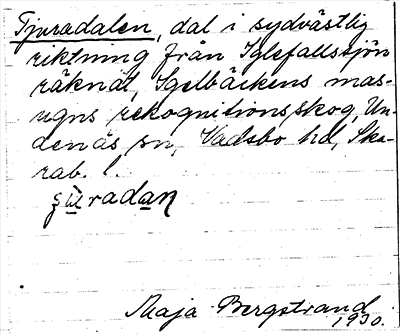 Tjuradalen, dal i sydvästlig
riktning från Iglefallssjön
räknat, Sgelbäckens mas-
ugns rekognitionsskog, Un-
denäs sn, Vadsbo hd, Ska-
rab. l.
Maja Bergstrand
1930.